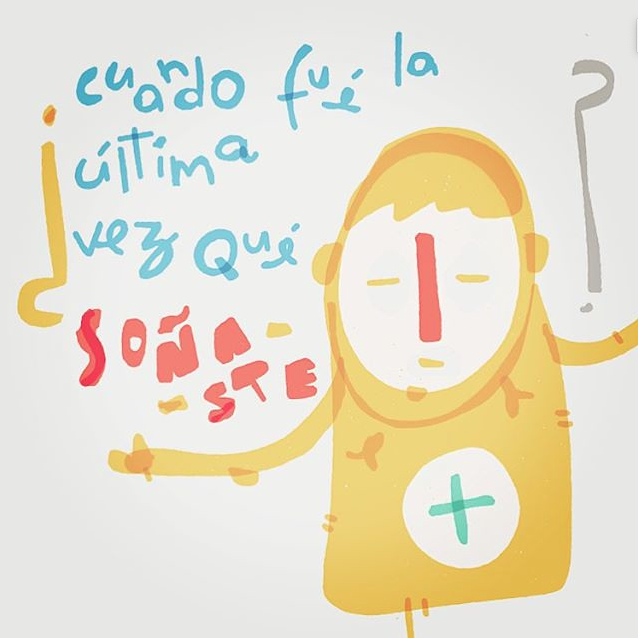 ¿cuando fué la
última
vez qué
SOÑA-
-STE?